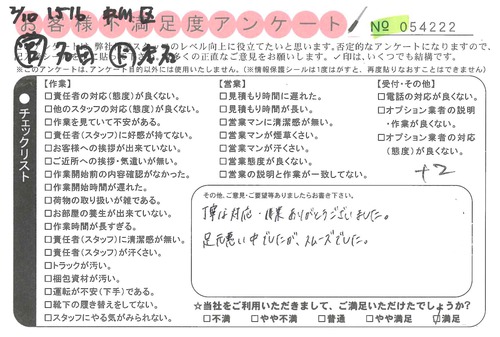 2/10 1516 中川区
お客様不満足度アンケート
№ 054222
営 石田 現 老力
ンケートは、弊社
スのレベル向上に役立てたいと思います。否定的なアンケートになりますので、
多くの正直なご意見をお願いします。✓印は、いくつでも結構です。
※このアンケートは、アンケート目的以外には使用いたしません。（※情報保護シールは1度はがすと、再度貼りなおすことはできません）
チェックリスト
【作業】
□責任者の対応（態度）が良くない。
□他のスタッフの対応（態度）が良くない。
□作業を見ていて不安がある。
□責任者（スタッフ）に好感が持てない。
□お客様への挨拶が出来ていない。
□ご近所への挨拶・気遣いが無い。
□作業開始前の内容確認がなかった。
□作業開始時間が遅れた。
□荷物の取り扱いが雑である。
□お部屋の養生が出来ていない。
□作業時間が長すぎる。
□責任者（スタッフ）に清潔感が無い。
□責任者（スタッフ）が汗くさい。
□トラックが汚い。
□梱包資材が汚い。
□運転が不安（下手）である。
□靴下の履き替えをしてない。
□スタッフにやる気がみられない。
【営業】
□見積もり時間に遅れた。
□見積もり時間が長い。
□営業マンに清潔感が無い。
□営業マンが煙草くさい。
□営業マンが汗くさい。
□営業態度が良くない。
□営業の説明と作業が一致してない。
【受付・その他】
□電話の対応が良くない。
□オプション業者の説明
・作業が良くない。
□オプション業者の対応
（態度）が良くない。
+2
その他、ご意見・ご要望等ありましたらお書き下さい。
丁寧な対応・作業ありがとうございました。
足元悪い中でしたが、スムーズでした。
☆当社をご利用いただきまして、ご満足いただけたでしょうか？
□不満 □やや不満 □普通 □やや満足 ☑満足